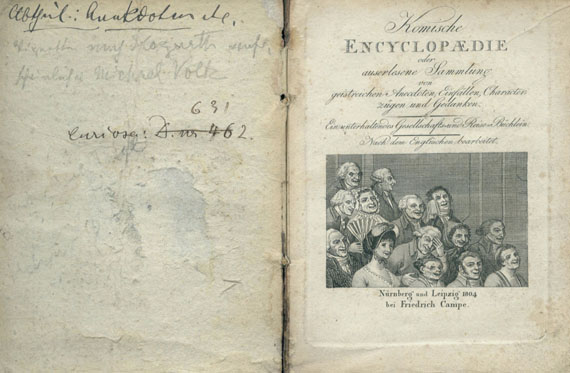 Abtheil.: Anekdoten etc.
Hogarth
Michael Volk
631
curiosa: D. no 462.
Komische
ENCYCLOPÆDIE
oder
auserlesene Sammlung
von
geistreichen Anecdoten, Einfällen, Character
zügen und Gedanken.
Ein unterhaltendes Gesellschafts- und Reise-Büchlein.
Nach dem Englischen bearbeitet.
Nürnberg und Leipzig 1804
bei Friedrich Campe.